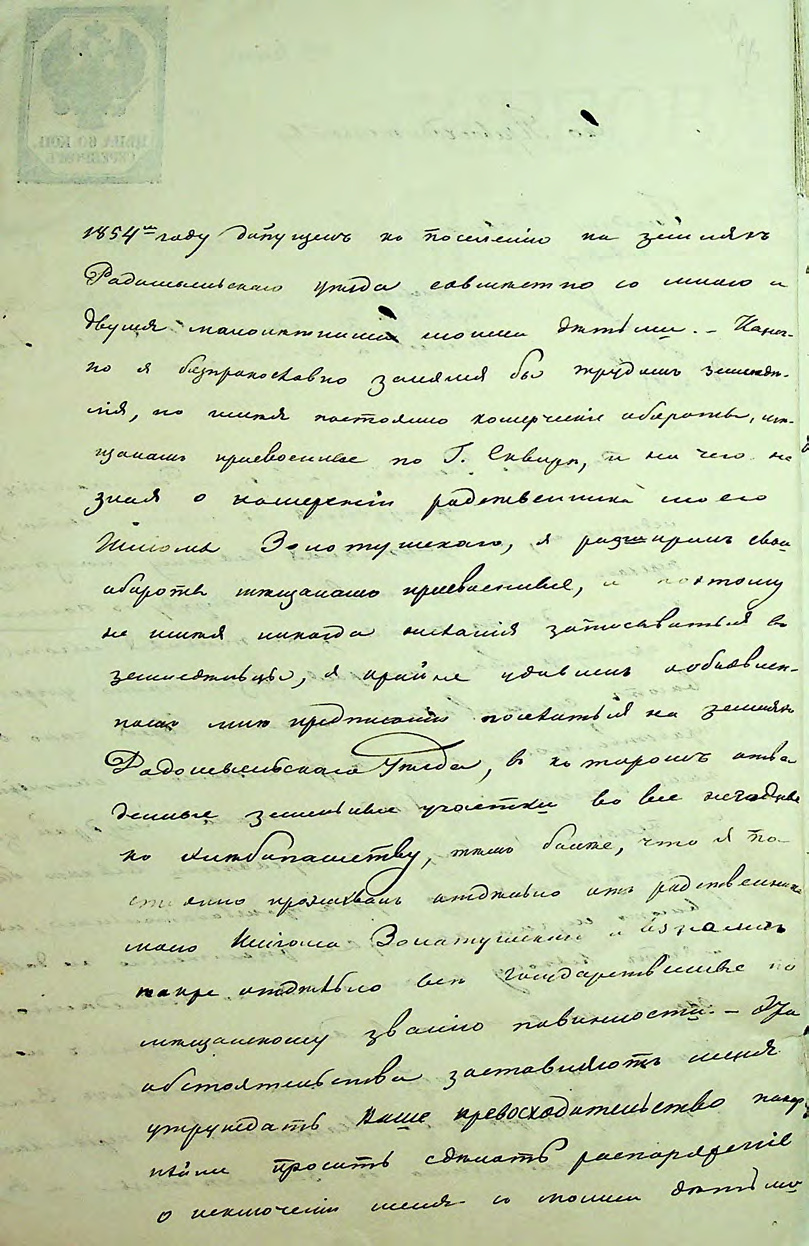 1854го году допущенъ къ поселенію на земляхъ
Радомысльскаго уѣзда совмѣстно со мною и
двумя малолѣтними моими дѣтьми. — Хотя
я занялся бы трудомъ
но имѣя постоянно комерческіе обороты,
присвоенные по Г. Сквирѣ, и ни чего не
зная о намереніи родственника моего
Золотушскаго, я разширилъ свои
обороты мѣщанамъ присвоенные, и потому
не имѣя никогда желанія записыватся въ
земледѣльцы, я крайне удивленъ объявлен-
нымъ мнѣ предписаніемъ поселится на земляхъ
Радомысльскаго Уѣзда, въ которомъ отве
денные земельные участки во все негодные
къ хлѣбопашеству, тѣмъ болѣе, что я по-
стоянно проживалъ отдѣльно отъ родственника
моего Золотушскаго и
отдѣльно всѣ государственные по
мѣщанскому званію повинности. — Эти
обстоятельства заставляютъ меня
утруждать Ваше превосходительство покор
нѣйше просить сделать распоряженіе
о исключеніи меня съ моими дѣтьми
ЦѢНА 60 КОП.
СЕРЕБРОМЪ